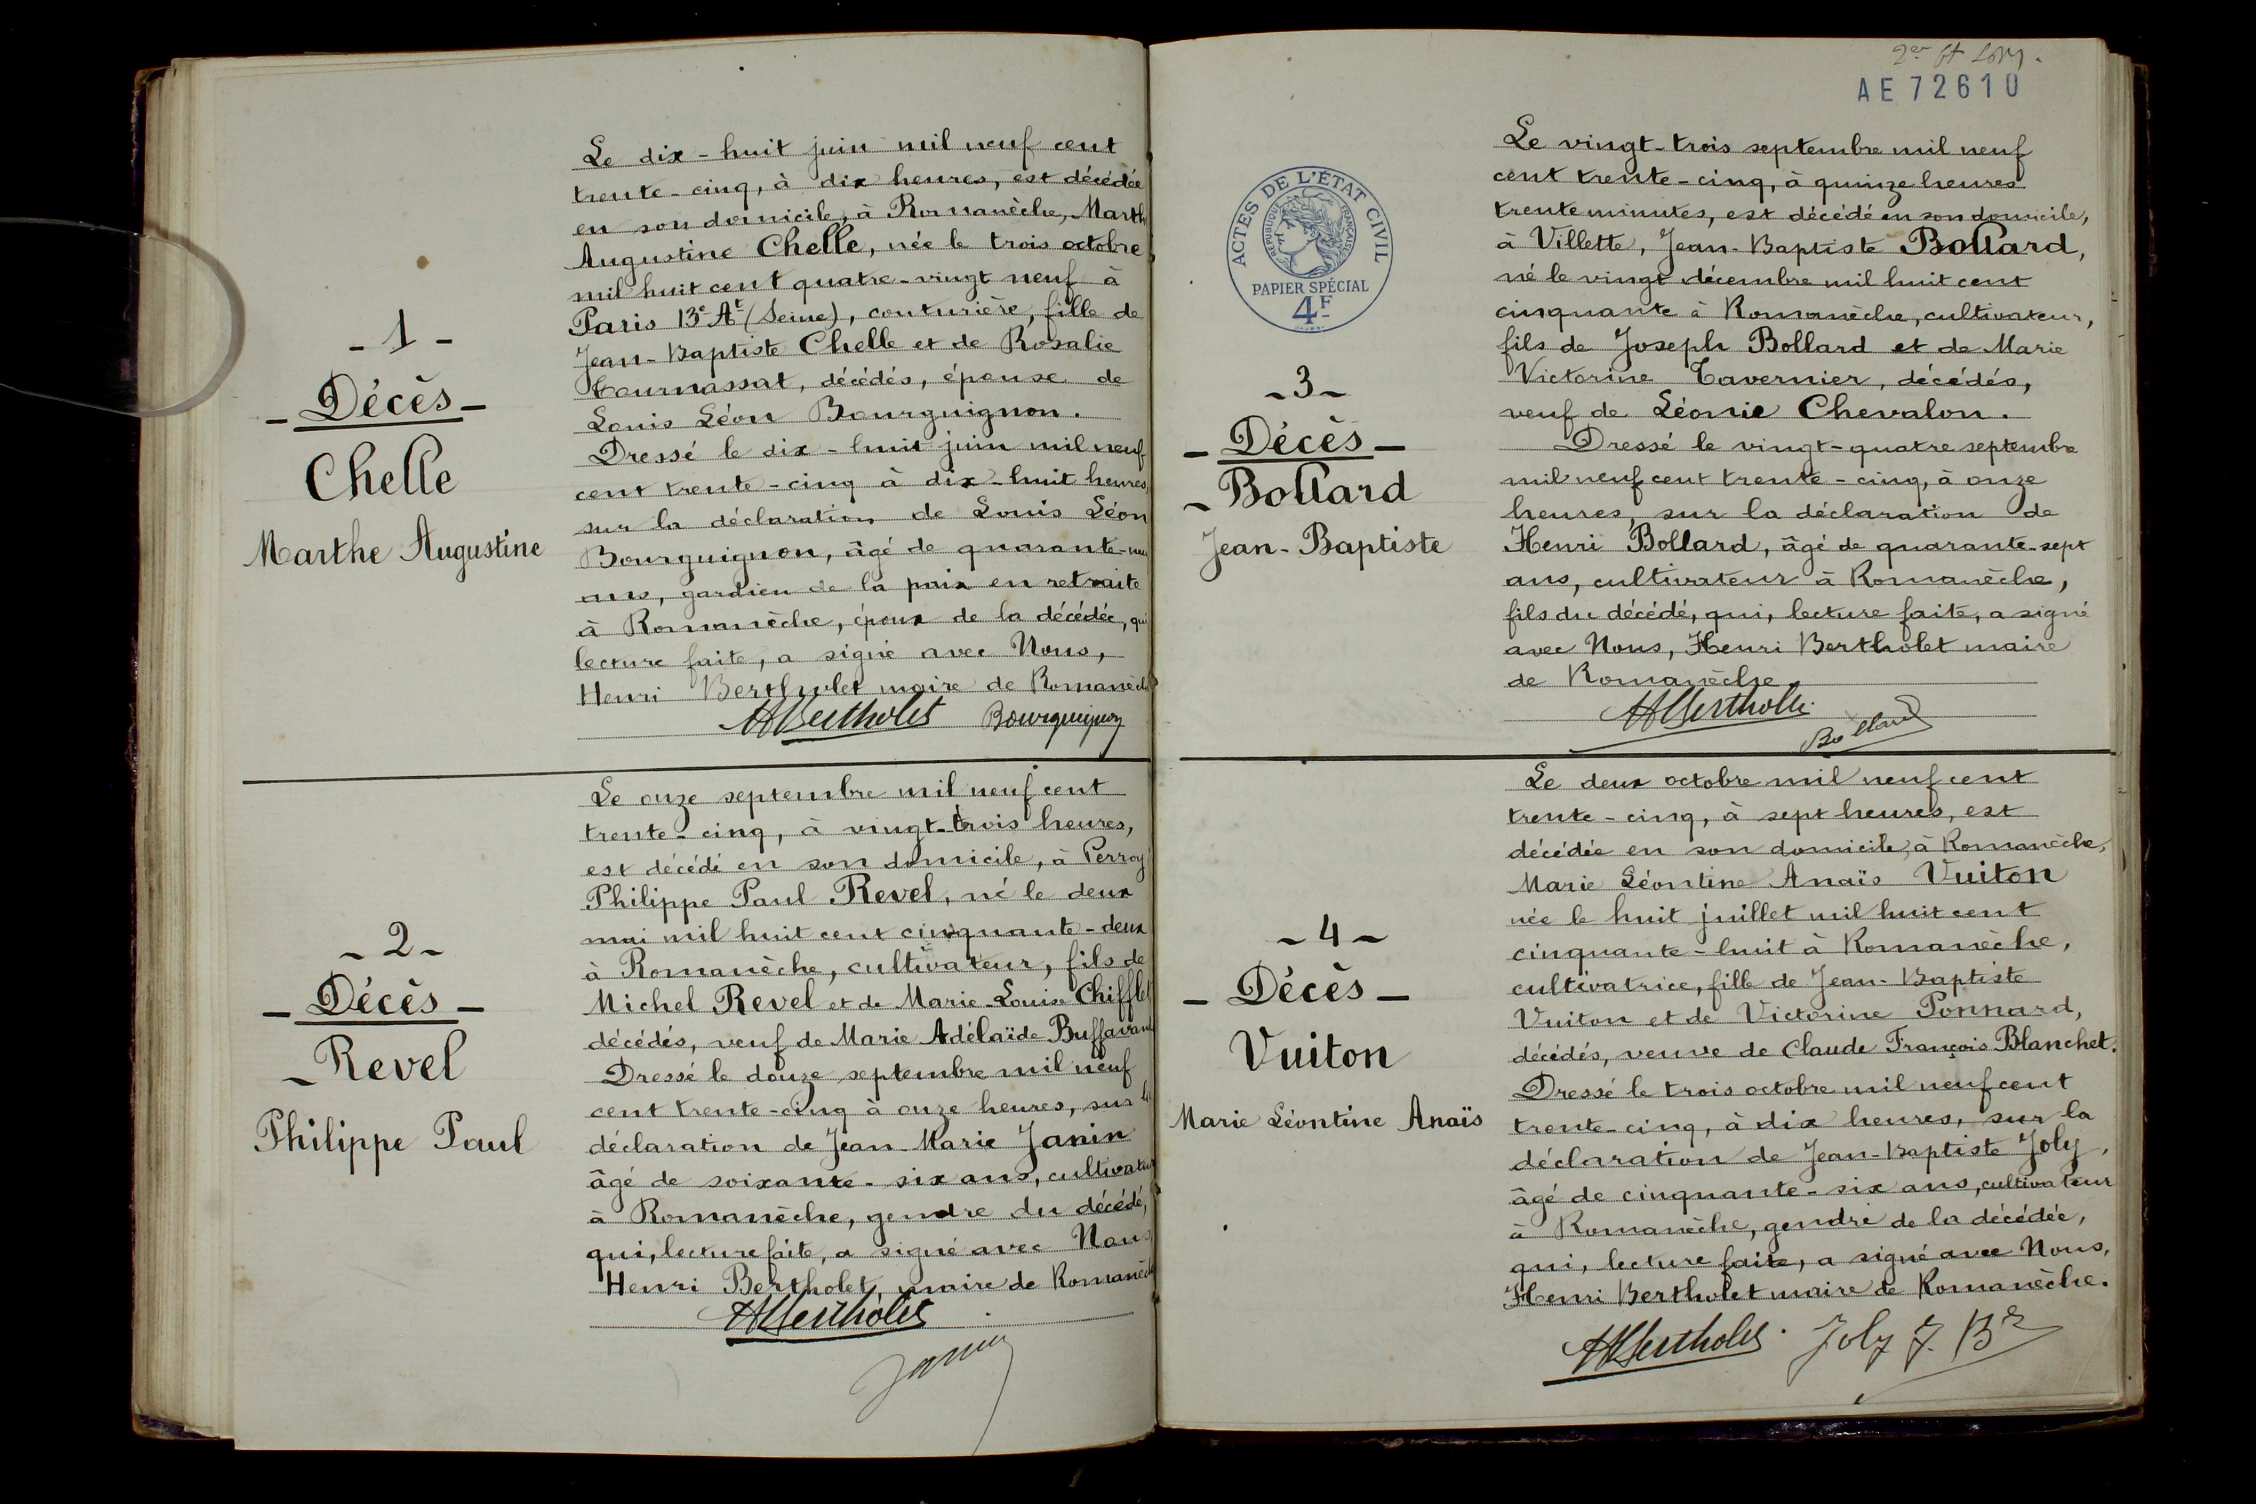 - 1 -
- Décès -
Chelle
Marthe Augustine
Le dix-huit juin mil neuf cent
trente-cinq, à dix heures, est décédée
en son domicile, à Romanèche, Marth
Augustine Chelle, née le trois octobre
mil huit cent quatre-vingt neuf à
Paris 13e At (Seine), couturière, fille de
Jean-Baptiste Chelle et de Rosalie
Tournassat, décédés, épouse de
Louis Léon Bourguignon.
Dressé le dix-huit juin mil neuf
cent trente-cinq à dix-huit heures,
sur la déclaration de Louis Léon
Bourguignon, âgé de quarante-
ans, gardien de la paix en retraite
à Romanèche, époux de la décédée, qui
lecture faite, a signé avec Nous,
Henri Bertholet maire de Romanèch
HBertholet Bourguignon
- 2 -
- Décès -
- Revel
Philippe Paul
Le onze septembre mil neuf cent
trente-cinq, à vingt-trois heures,
est décédé en son domicile, à Perroy
Philippe Paul Revel, né le deux
mai mil huit cent cinquante-deux
à Romanèche, cultivateur, fils de
Michel Revel et de Marie-Louise Chifflet
décédés, veuf de Marie Adélaïde Buffavand
Dressé le douze septembre mil neuf
cent trente-cinq à onze heures, sur l
déclaration de Jean-Marie Janin
âgé de soixante-six ans, cultivateur
à Romanèche, gendre du décédé,
qui, lecture faite, a signé avec Nous
Henri Bertholet, maire de Romanèch
HBertholet
Janin
AE 72610
ACTES DE L'ÉTAT CIVIL
RÉPUBLIQUE FRANÇAISE
PAPIER SPÉCIAL
4F
- 3 -
- Décès -
- Bollard
Jean-Baptiste
Le vingt-trois septembre mil neuf
cent trente-cinq, à quinze heures
trente minutes, est décédé en son domicile,
à Villette, Jean-Baptiste Bollard,
né le vingt décembre mil huit cent
cinquante à Romanèche, cultivateur,
fils de Joseph Bollard et de Marie
Victorine Tavernier, décédés,
veuf de Léonie Chevalon.
Dressé le vingt-quatre septembre
mil neuf cent trente-cinq, à onze
heures, sur la déclaration de
Henri Bollard, âgé de quarante-sept
ans, cultivateur à Romanèche,
fils du décédé, qui, lecture faite, a signé
avec Nous, Henri Bertholet maire
de Romanèche
HBertholet
Bollard
- 4 -
- Décès -
Vuiton
Marie Léontine Anaïs
Le deux octobre mil neuf cent
trente-cinq, à sept heures, est
décédée en son domicile, à Romanèche,
Marie Léontine Anaïs Vuiton
née le huit juillet mil huit cent
cinquante-huit à Romanèche,
cultivatrice, fille de Jean-Baptiste
Vuiton et de Victorine Ponnard,
décédés, veuve de Claude François Blanchet.
Dressé le trois octobre mil neuf cent
trente-cinq, à dix heures, sur la
déclaration de Jean-Baptiste Joly,
âgé de cinquante-six ans, cultivateur
à Romanèche, gendre de la décédée,
qui, lecture faite, a signé avec Nous,
Henri Bertholet maire de Romanèche.
HBertholet Joly J. Bte